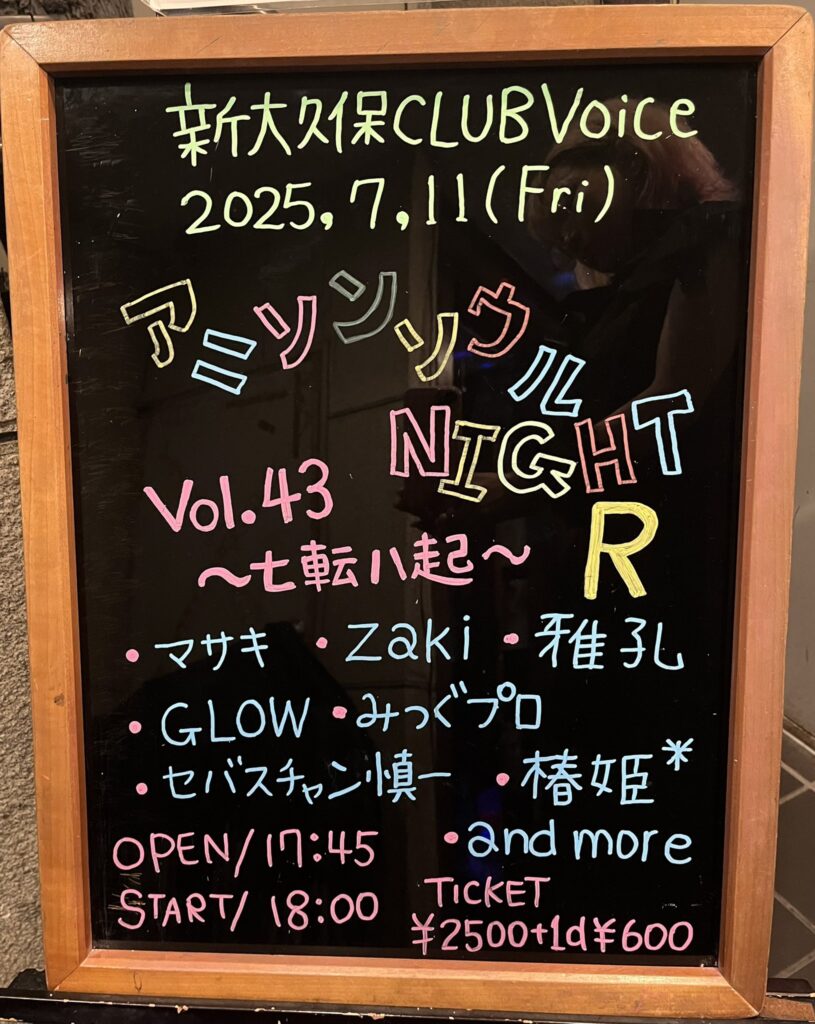 新大久保CLUB Voice
2025,7,11(Fri)
アニソンソウル
NIGHT
R
Vol.43
〜七転八起〜
・マサキ ・zaki ・雅孔
・GLOW ・みつぐプロ
・セバスチャン慎一 ・椿姫*
・and more
OPEN/17:45
START/18:00
TICKET
¥2500+1d¥600